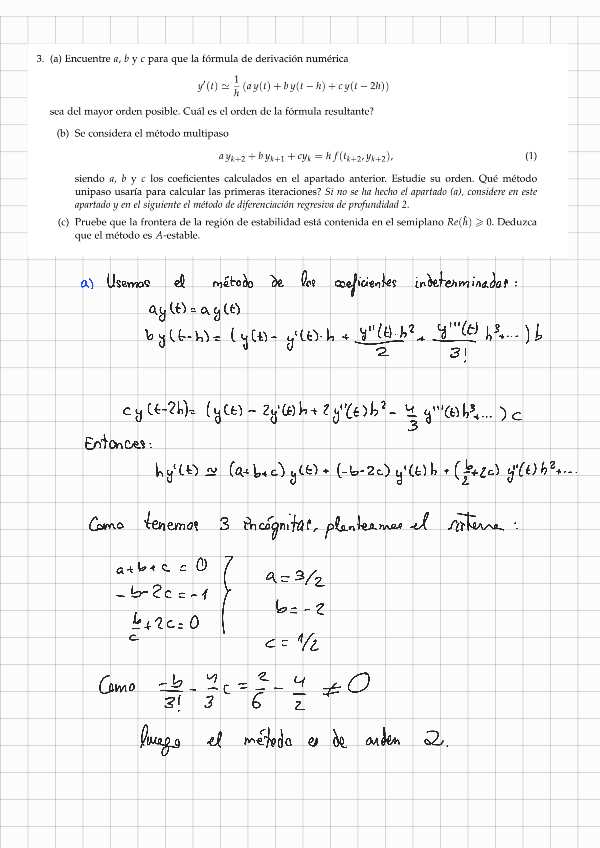 3. (a) Encuentre a, b y c para que la fórmula de derivación numérica
y′(t) ≃ 1/h (a y(t) + b y(t − h) + c y(t − 2h))
sea del mayor orden posible. Cuál es el orden de la fórmula resultante?
(b) Se considera el método multipaso
a y_{k+2} + b y_{k+1} + c y_k = h f(t_{k+2}, y_{k+2}), (1)
siendo a, b y c los coeficientes calculados en el apartado anterior. Estudie su orden. Qué método
unipaso usaría para calcular las primeras iteraciones? Si no se ha hecho el apartado (a), considere en este
apartado y en el siguiente el método de diferenciación regresiva de profundidad 2.
(c) Pruebe que la frontera de la región de estabilidad está contenida en el semiplano Re(ĥ) ⩾ 0. Deduzca
que el método es A-estable.
a) Usemos el método de los coeficientes indeterminados:
a y(t) = a y(t)
b y(t-h) = (y(t) - y'(t)·h + y''(t)·h²/2 + y'''(t)/3! h³+...) b
c y(t-2h) = (y(t) - 2y'(t)h + 2y''(t)h² - 4/3 y'''(t)h³+...) c
Entonces:
hy'(t) ≃ (a+b+c) y(t) + (-b-2c) y'(t)h + (b/2+2c) y''(t)h²+...
Como tenemos 3 incógnitas, planteamos el sistema:
a+b+c = 0
-b-2c = -1
b/c + 2c = 0
a = 3/2
b = -2
c = 1/2
Como -b/3! - 4/3 c = 2/6 - 4/2 ≠ 0
luego el método es de orden 2.